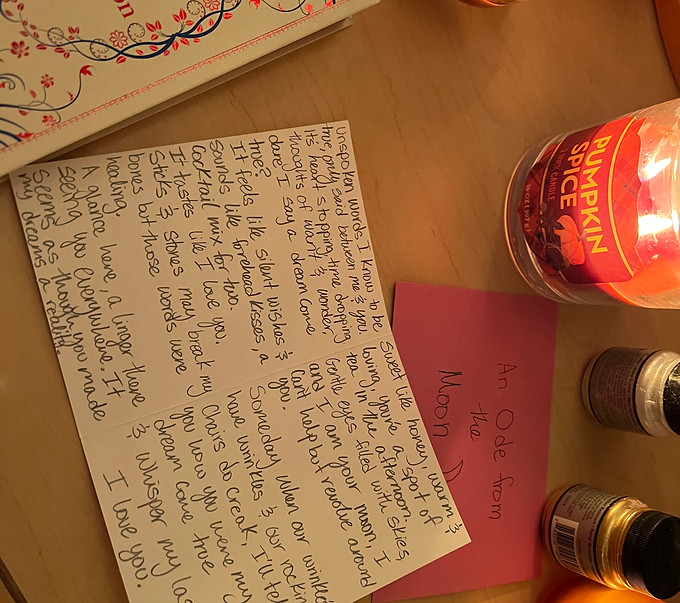 Unspoken words, I know to be
true, only said between me & you.
It's heart stopping, time dropping
thoughts of want & wonder,
dare I say a dream come
true?
It feels like silent wishes &
sounds like forehead kisses, a
cocktail mix for two.
It tastes like I love you.
Sticks & stones may break my
bones but those words were
healing.
A glance here, a linger there
seeing you everywhere. It
seems as though you made
my dreams a reality.
Sweet like honey, warm &
loving, you're a spot of
tea in the afternoon.
Gentle eyes filled with skies,
and I am your moon, I
can't help but revolve around
you.
Someday when our wrinkles
have wrinkles & our rockin
chairs do creak, I'll tel
you how you were my
dream come true
& whisper my las
I love you.
An Ode from
the
Moon
PUMPKIN
SPICE
CANDLE
on